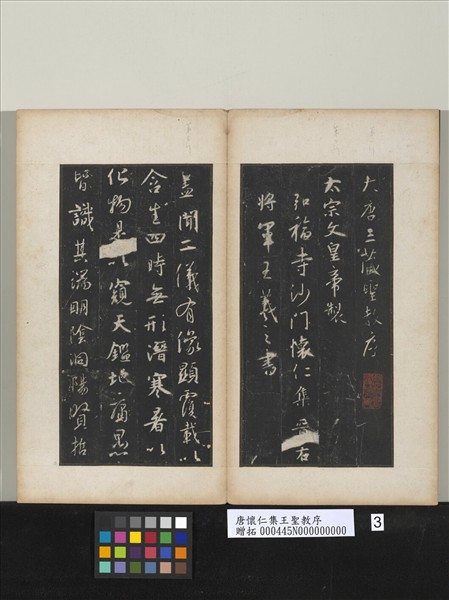 大唐三藏聖教序
太宗文皇帝製
弘福寺沙門懷仁集晉右
將軍王羲之書
蓋聞二儀有像顯覆載以
含生四時無形潛寒暑以
化物是以窺天鑑地庸愚
皆識其端明陰洞陽賢哲
唐懷仁集王聖教序
贈拓 000445N000000000
3